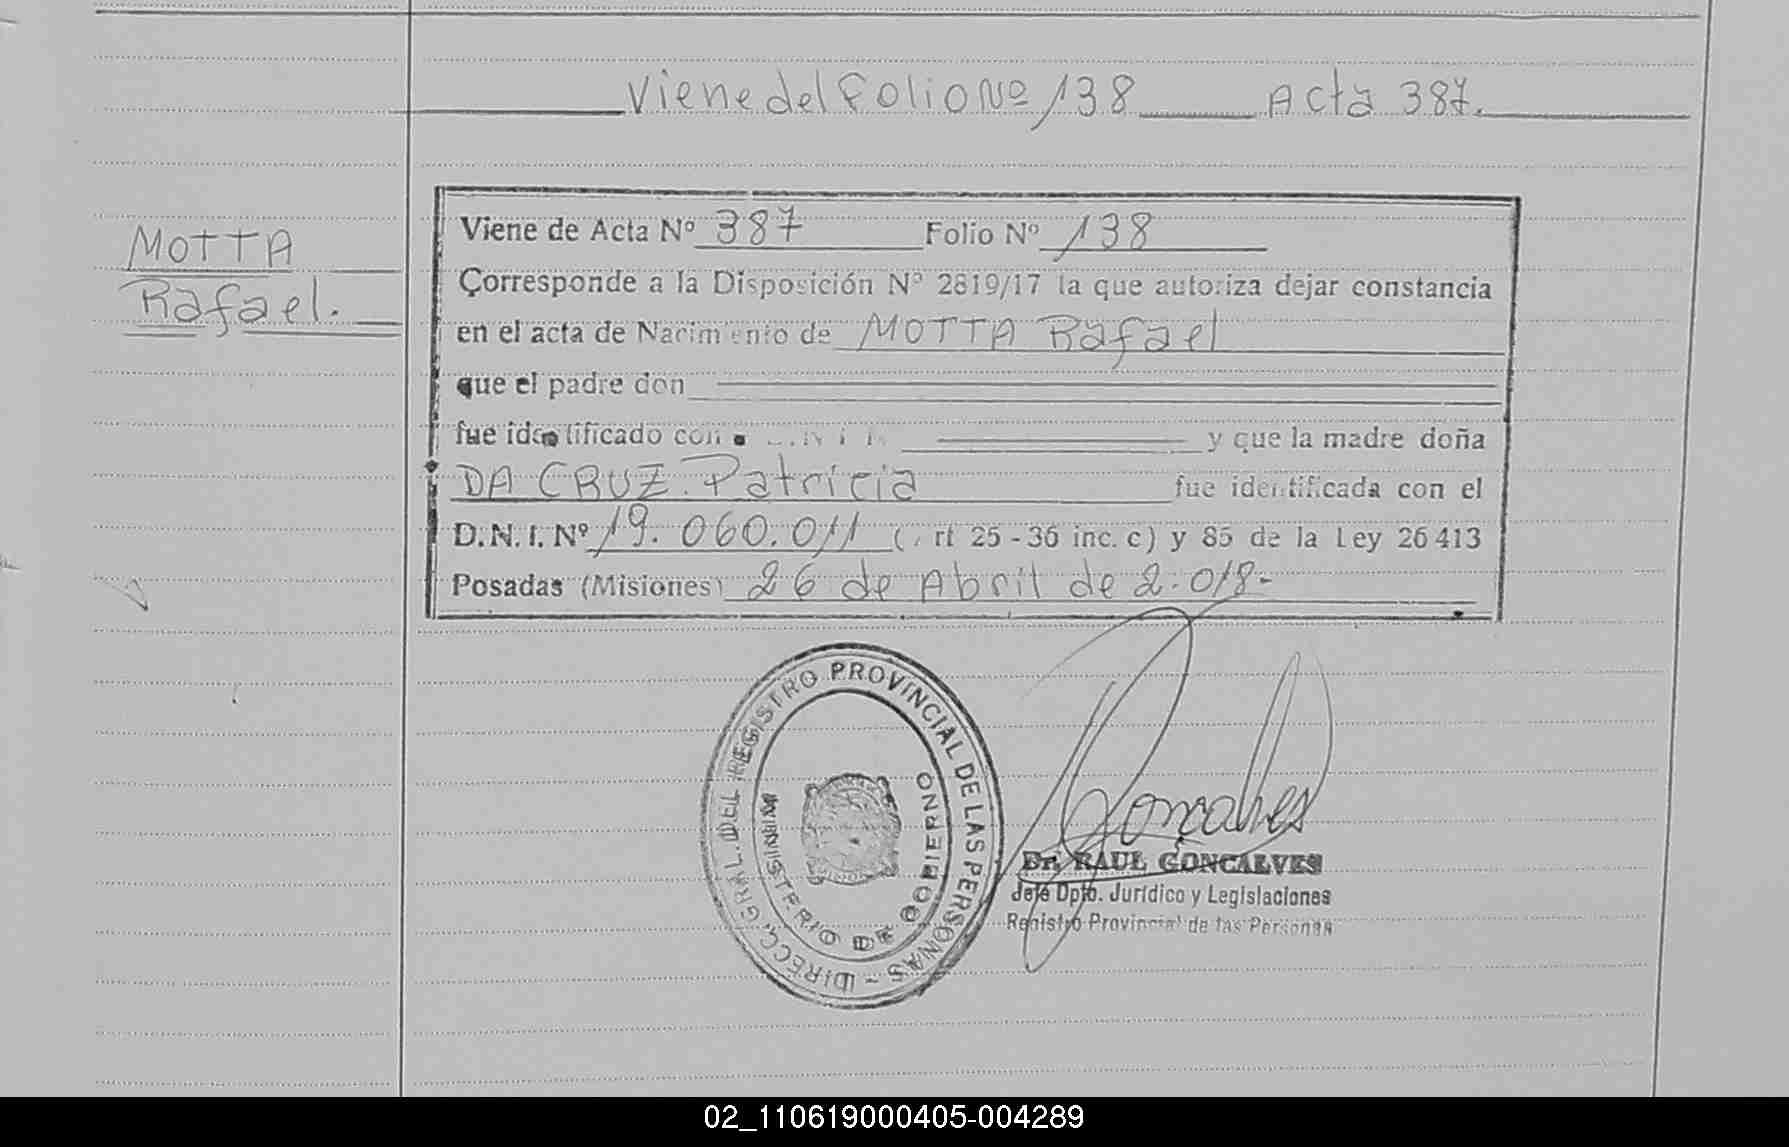 Viene del Folio Nº 138 Acta 387.
MOTTA
Rafael.
Viene de Acta Nº 387 Folio Nº 138
Corresponde a la Disposición Nº 2819/17 la que autoriza dejar constancia
en el acta de Nacimiento de MOTTA Rafael
que el padre don
fue identificado con D.N.I. Nº y que la madre doña
DA CRUZ Patricia fue identificada con el
D.N.I. Nº 19.060.011 (Art 25-36 inc. c) y 85 de la Ley 26413
Posadas (Misiones) 26 de Abril de 2.018-
DIRECC. GRAL. DEL REGISTRO PROVINCIAL DE LAS PERSONAS -
MINISTERIO DE GOBIERNO
Goncalves
Dr. RAUL GONCALVES
Jefe Dpto. Jurídico y Legislaciones
Registro Provincial de las Personas
02_110619000405-004289